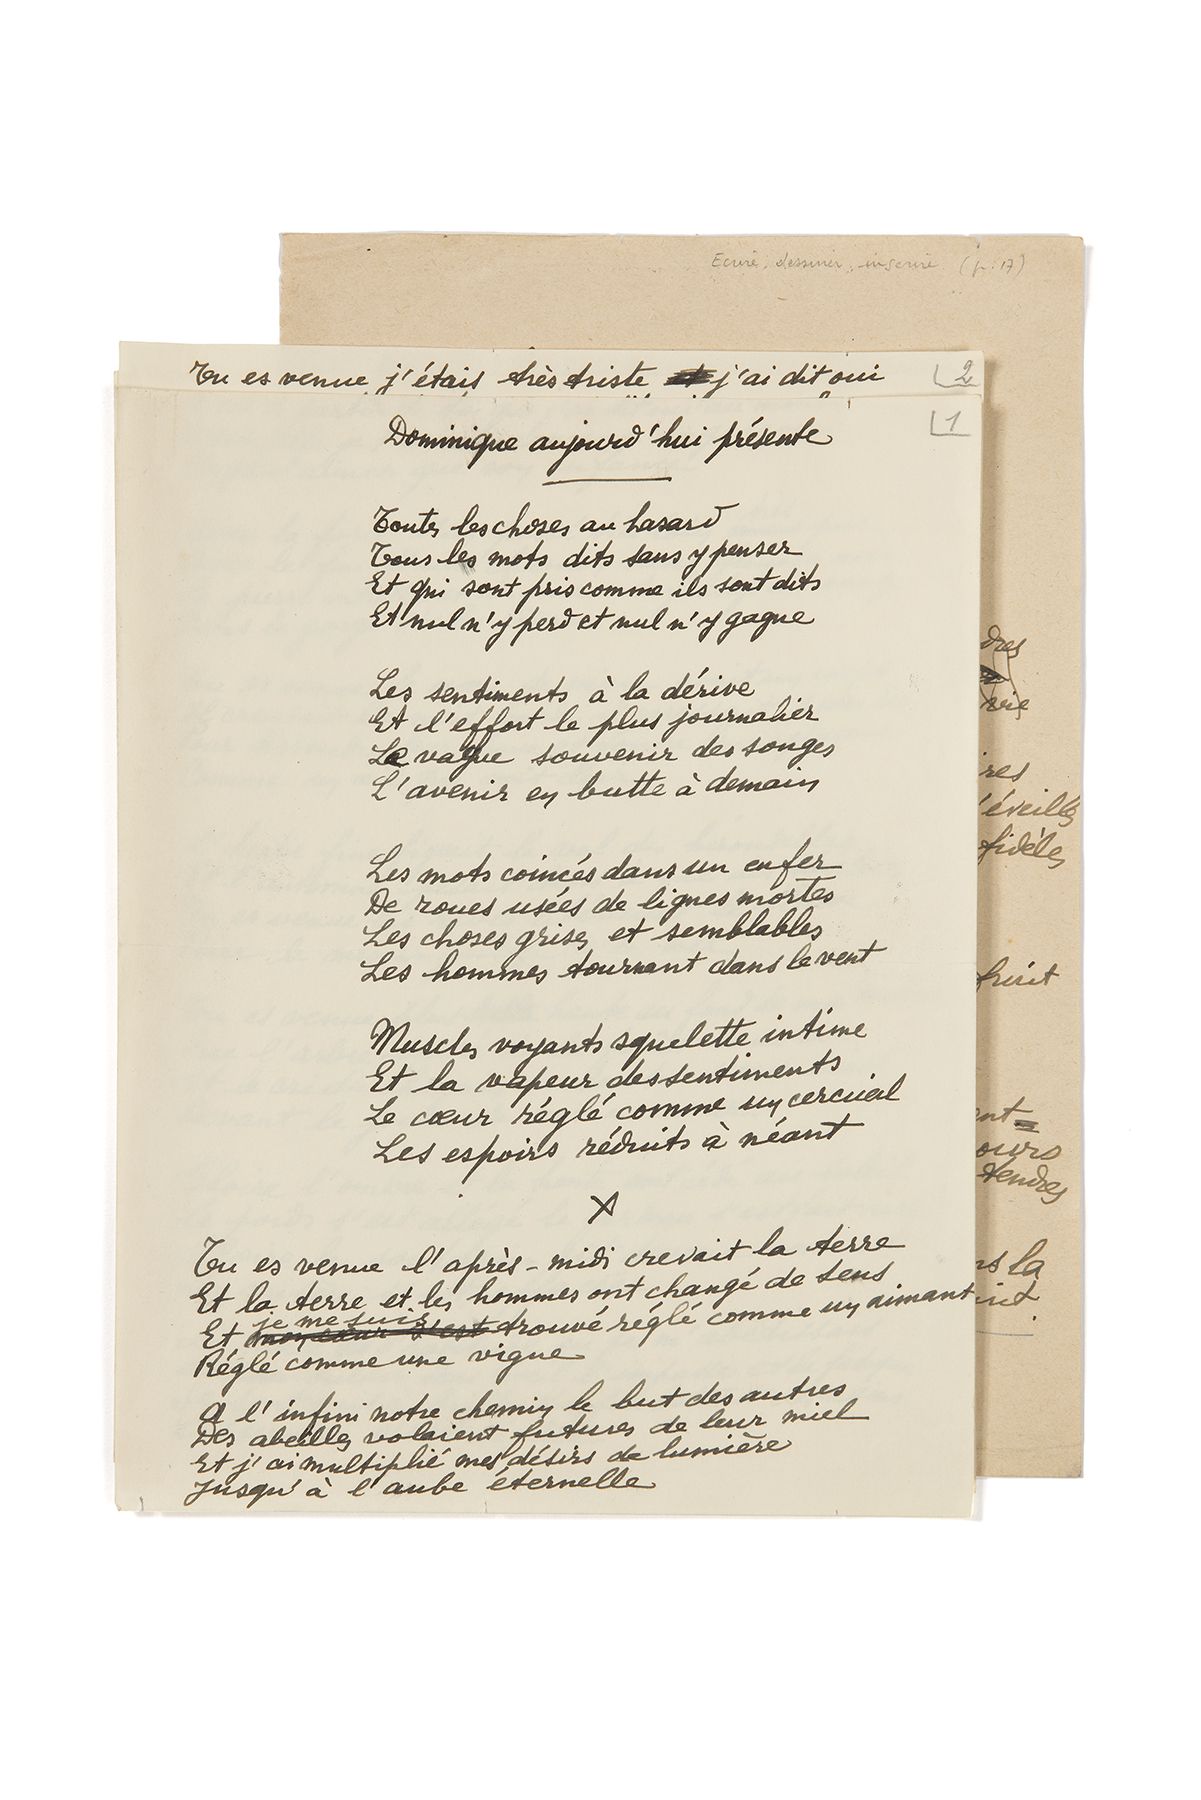 Ecrire, dessiner, inscrire (p. 17)
Tu es venue j'étais très triste j'ai dit oui
2
1
Dominique aujourd'hui présente
Toutes les choses au hasard
Tous les mots dits sans y penser
Et qui sont pris comme ils sont dits
Et nul n'y perd et nul n'y gagne
Les sentiments à la dérive
Et l'effort le plus journalier
Le vague souvenir des songes
L'avenir en butte à demain
Les mots coincés dans un enfer
De roues usées de lignes mortes
Les choses grises et semblables
Les hommes tournant dans le vent
Muscles voyants squelette intime
Et la vapeur des sentiments
Le cœur réglé comme un cercueil
Les espoirs réduits à néant
X
Tu es venue l'après-midi crevait la terre
Et la terre et les hommes ont changé de sens
je me suis
Et mon cœur s'est trouvé réglé comme un aimant
Réglé comme une vigne
A l'infini notre chemin le but des autres
Des abeilles volaient futures de leur miel
Et j'ai multiplié mes désirs de lumière
Jusqu'à l'aube éternelle
dres
vie
ires
'éveillés
fidèles
fruit
ent
ours
tendres
ns la